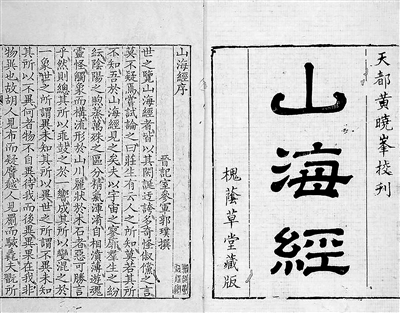 天都黃曉峯挍刋
山海經
槐蔭草堂藏版
山海經序
晉記室參軍郭璞撰
世之覽山海經者皆以其閎誕迂誇多奇怪俶儻之言
莫不疑焉嘗試論之曰莊生有云人之所知莫若其所
不知吾於山海經見之矣夫以宇宙之寥廓羣生之紛
紜陰陽之煦蒸萬殊之區分精氣渾淆自相濆薄遊魂
靈怪觸象而構流形於山川麗狀於木石者惡可勝言
乎然則總其所以乖鼓之於一響成其所以變混之於
一象世之所謂異未知其所以異世之所謂不異未知
其所以不異何者物不自異待我而後異異果在我非
物異也故胡人見布而疑黂越人見罽而駭毳夫翫所